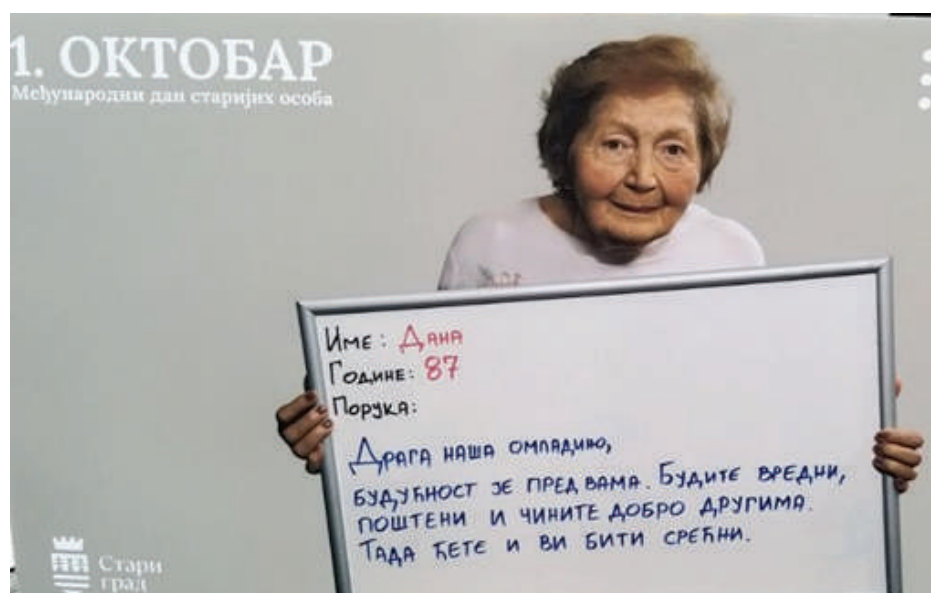 1. ОКТОБАР
Међународни дан старијих особа
Име: Дана
Године: 87
Порука:
Драга наша омладино,
будућност је пред вама. Будите вредни,
поштени и чините добро другима.
Тада ћете и ви бити срећни.
Стари
град